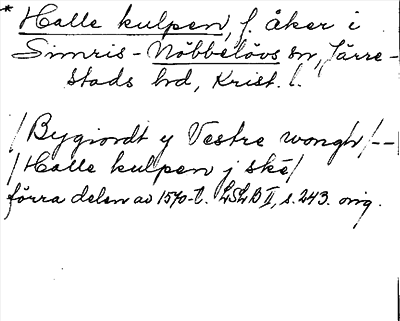 * Halle kulpen, f. åker i
Simris-Nöbbelövs sn, Järre-
stads hd, Krist. l.
/Bygiordt y Vestre wongh/--
/Halle kulpen j ské/
förra delen av 1570-t. LSLB II, s. 243. orig.